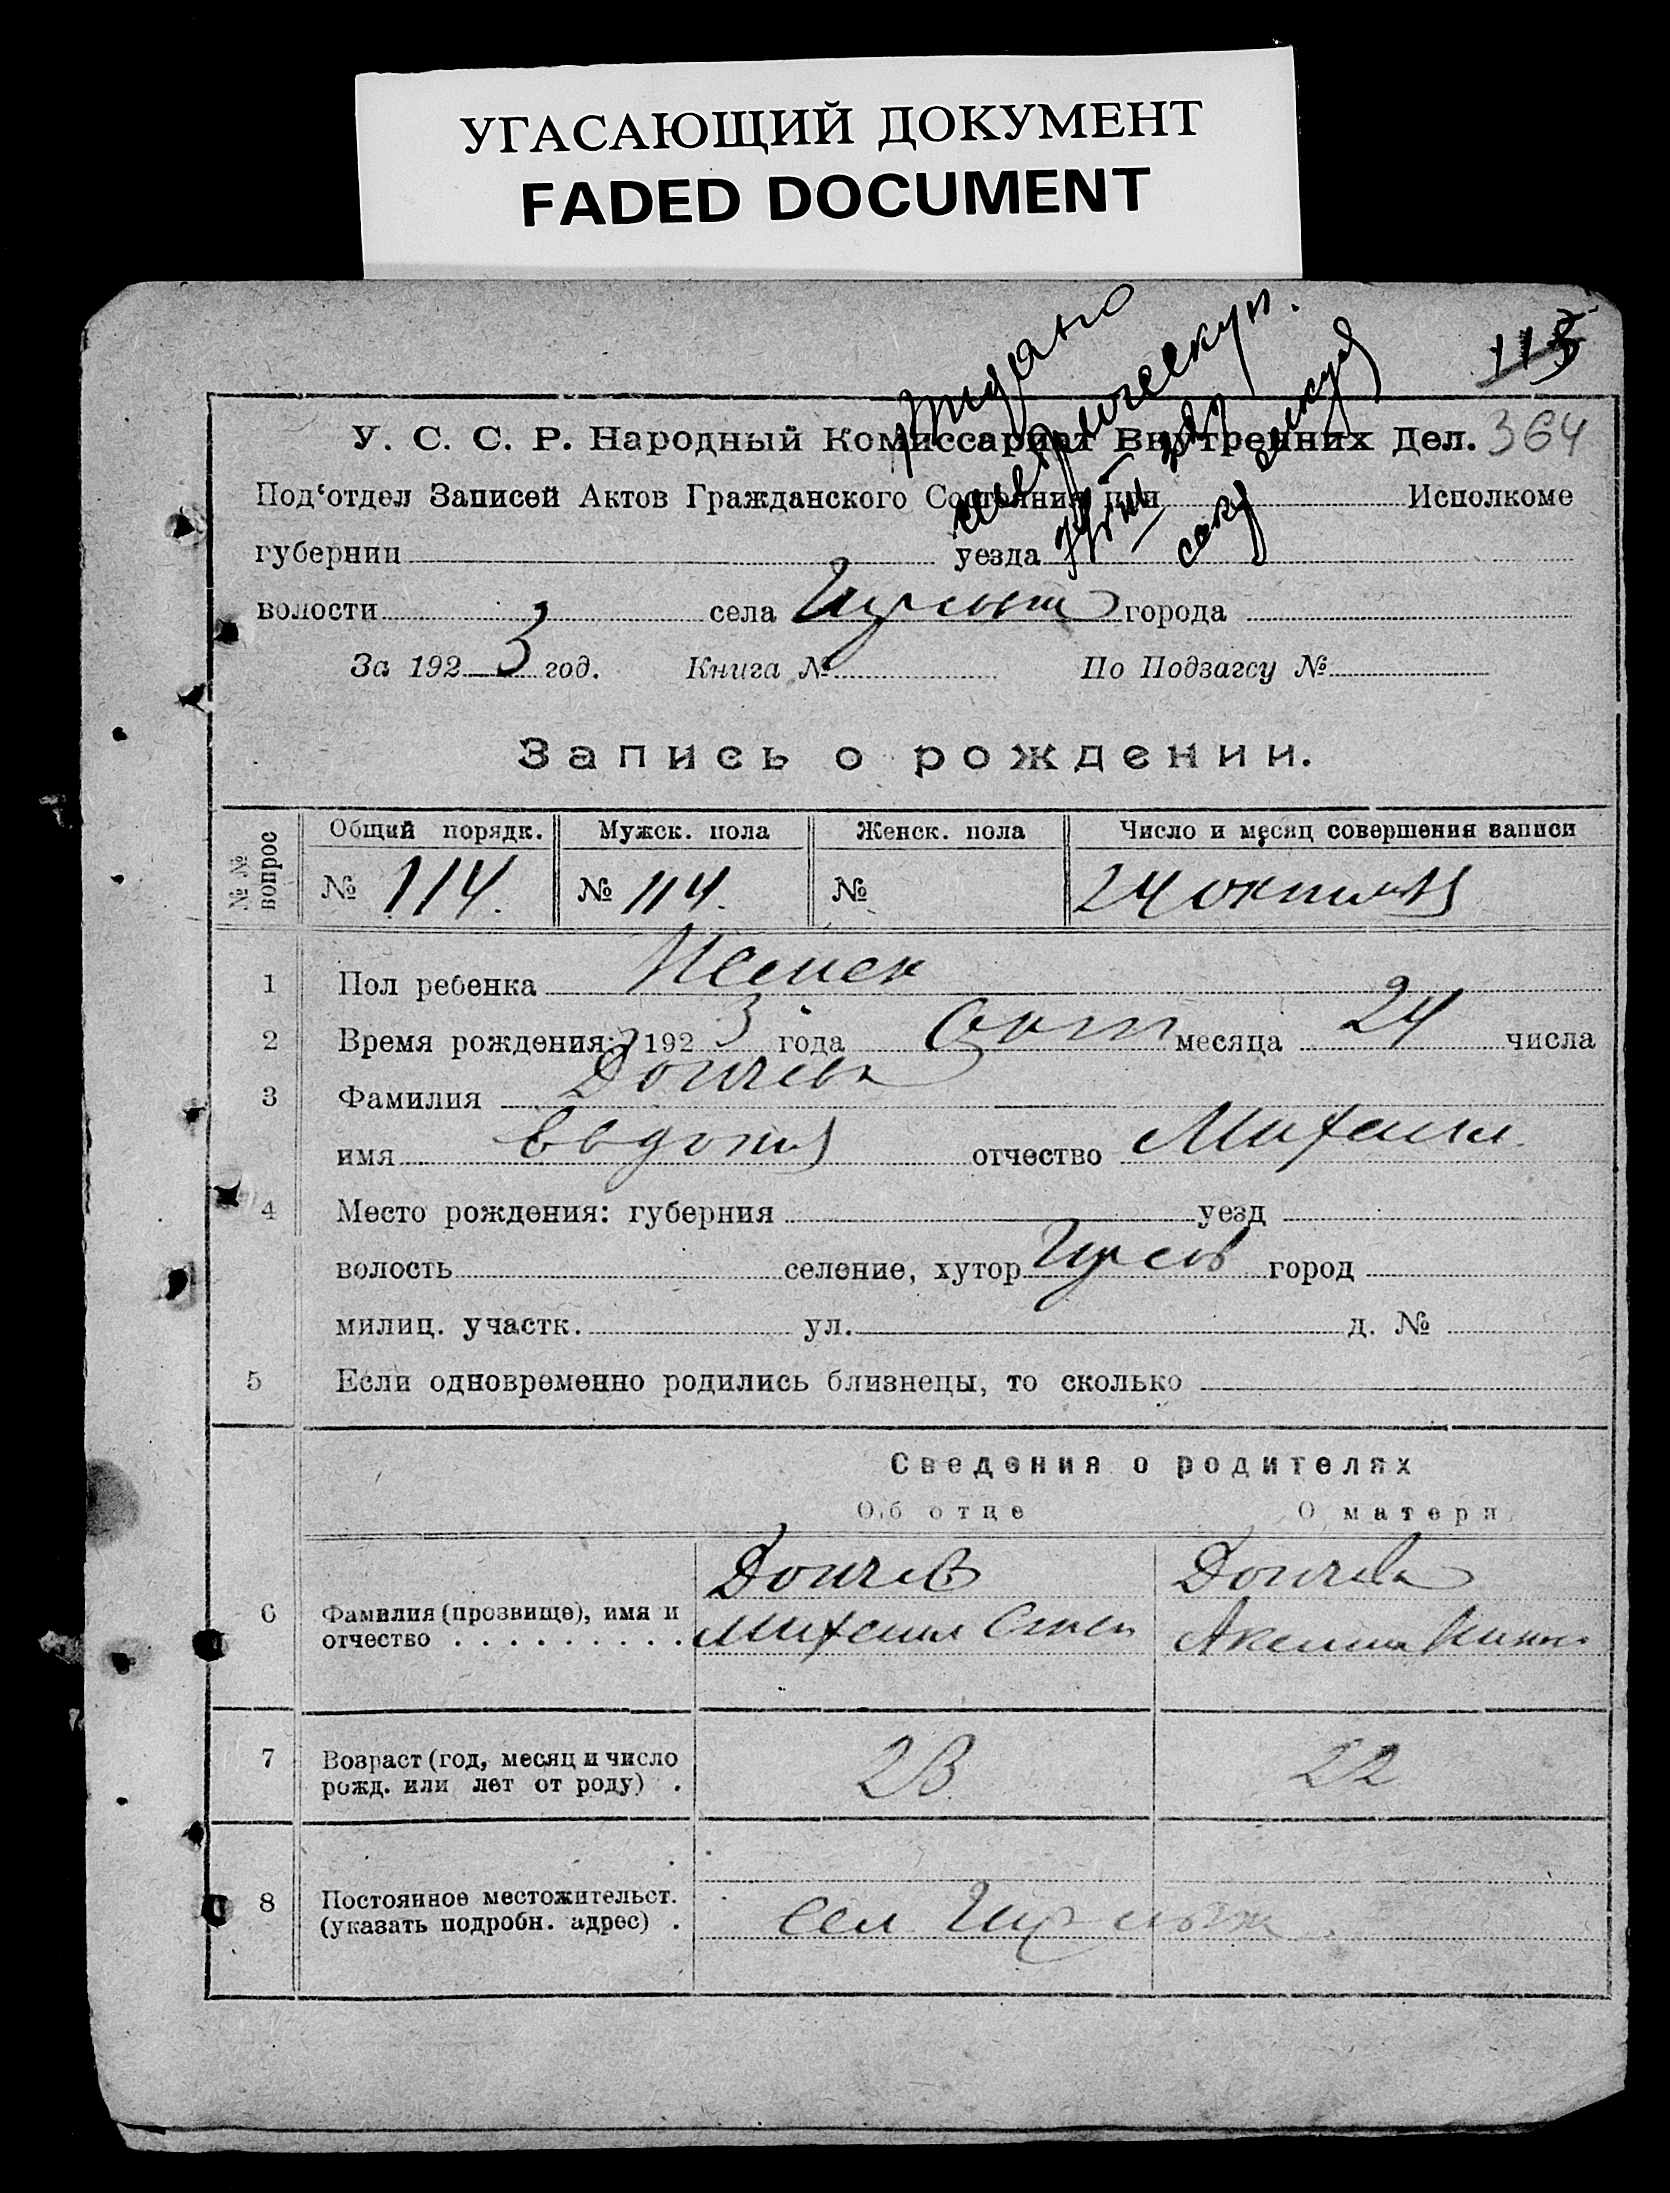 УГАСАЮЩИЙ ДОКУМЕНТ
FADED DOCUMENT
113
У. С. С. Р. Народный Комиссариат Внутренних Дел. 364
Под‘отдел Записей Актов Гражданского Состояния при Исполкоме
губернии уезда
волости села города
За 192 3 год. Книга № По Подзагсу №
Запись о рождении.
№ № вопрос Общий порядк. Мужск. пола Женск. пола Число и месяц совершения записи
№ 114. № 114. № 24 октября
1 Пол ребенка Женск
2 Время рождения: 192 3 года Окт месяца 24 числа
3 Фамилия Дойчева
имя Евдокия отчество Михаил.
4 Место рождения: губерния уезд
волость селение, хутор город
милиц. участк. ул. д. №
5 Если одновременно родились близнецы, то сколько
Сведения о родителях
Об отце О матери
Дойчев Дойчева
6 Фамилия (прозвище), имя и
отчество . . . . . . . . . Михаил Степ
7 Возраст (год, месяц и число
рожд. или лет от роду) . 23 22
8 Постоянное местожительст.
(указать подробн. адрес) . Сел